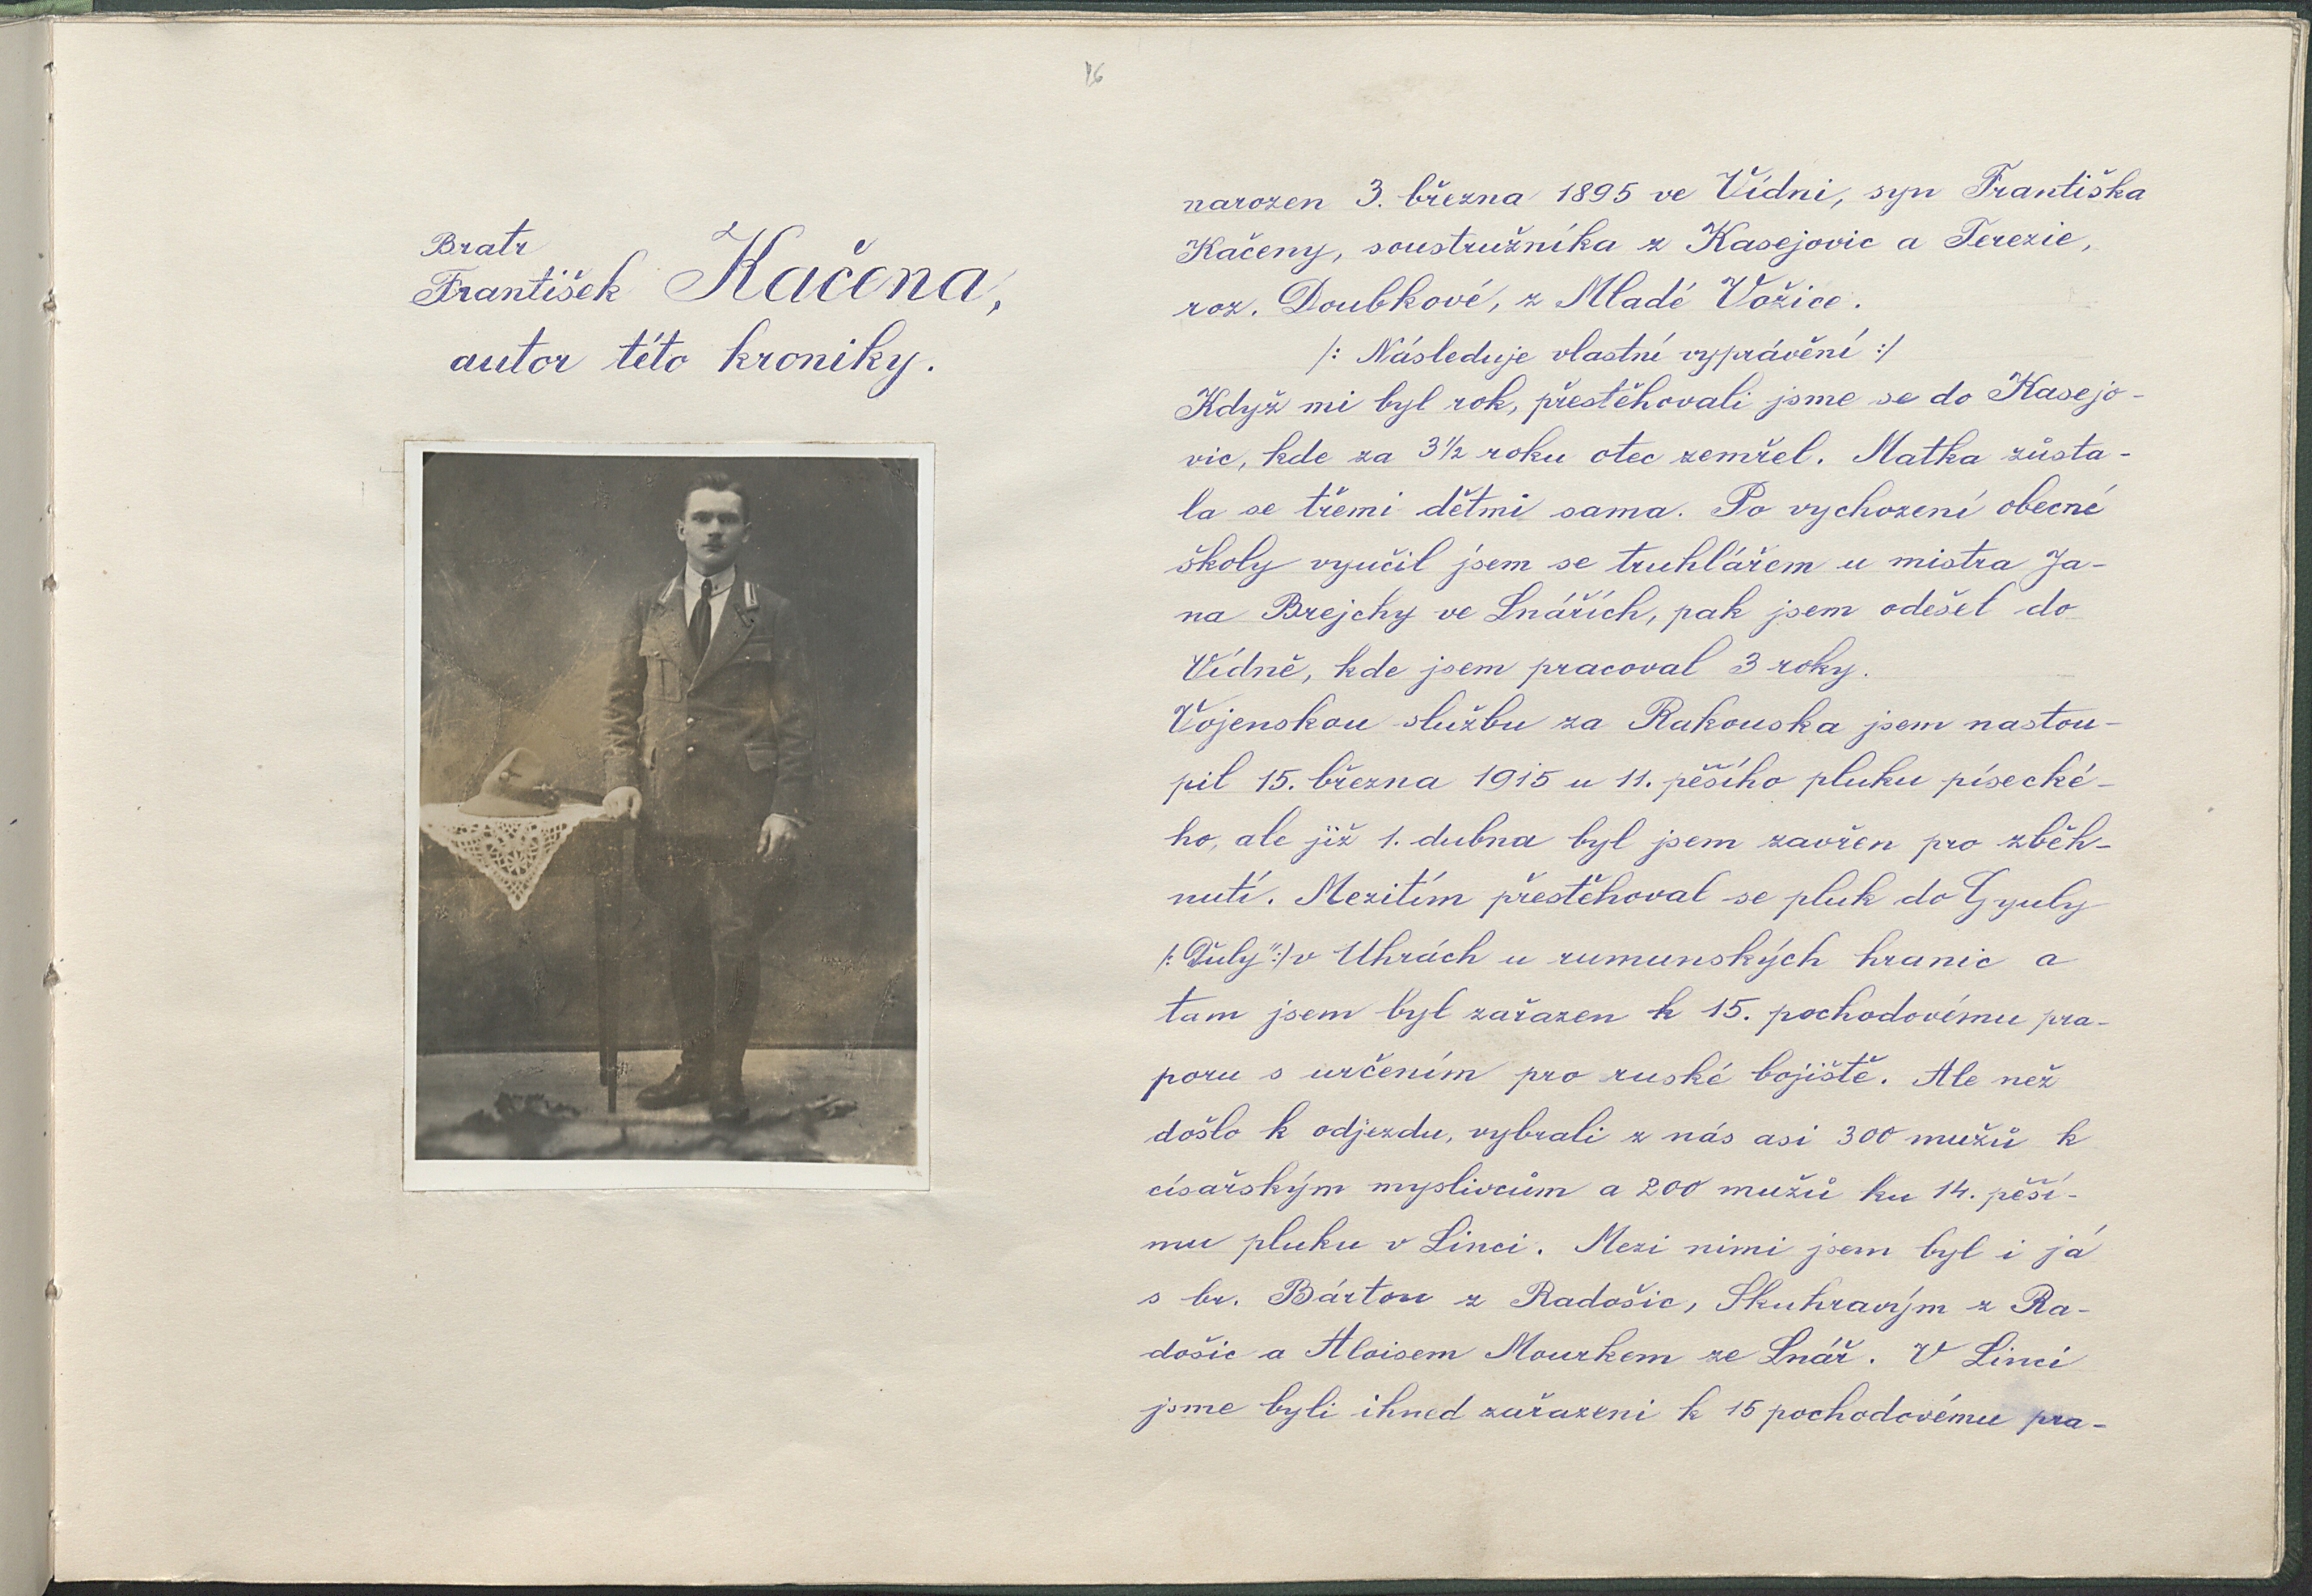 16
Bratr
František Kačena,
autor této kroniky.
narozen 3. března 1895 ve Vídni, syn Františka
Kačeny, soustružníka z Kasejovic a Terezie,
roz. Doubkové, z Mladé Vožice.
/: Následuje vlastní vyprávění :/
Když mi byl rok, přestěhovali jsme se do Kasejo-
vic, kde za 3½ roku otec zemřel. Matka zůsta-
la se třemi dětmi sama. Po vychození obecné
školy vyučil jsem se truhlářem u mistra Ja-
na Brejchy ve Lnářích, pak jsem odešel do
Vídně, kde jsem pracoval 3 roky.
Vojenskou službu za Rakouska jsem nastou-
pil 15. března 1915 u 11. pěšího pluku písecké-
ho, ale již 1. dubna byl jsem zavřen pro zběh-
nutí. Mezitím přestěhoval se pluk do Gyuly
/: Ďuly":/ v Uhrách u rumunských hranic a
tam jsem byl zařazen k 15. pochodovému pra-
poru s určením pro ruské bojiště. Ale než
došlo k odjezdu, vybrali z nás asi 300 mužů k
císařským myslivcům a 200 mužů ku 14. pěší-
mu pluku v Linci. Mezi nimi jsem byl i já
s br. Bártou z Radošic, Skuhravým z Ra-
došic a Aloisem Mourkem ze Lnář. V Linci
jsme byli ihned zařazeni k 15 pochodovému pra-